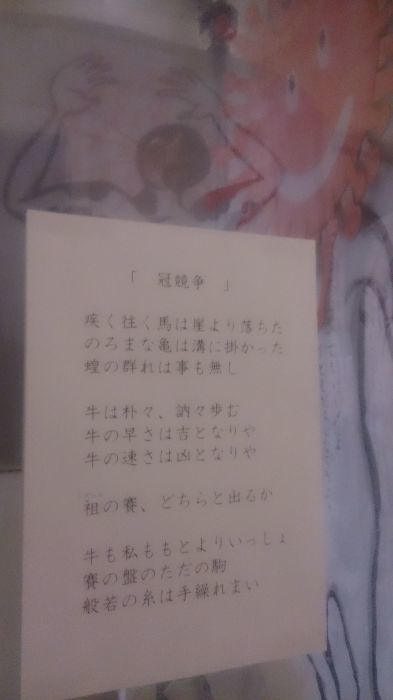 「　冠競争　」
疾く往く馬は崖より落ちた
のろまな亀は溝に掛かった
蝗の群れは事も無し
牛は朴々、訥々歩む
牛の早さは吉となりや
牛の速さは凶となりや
祖の賽、どちらと出るか
牛も私ももとよりいっしょ
賽の盤のただの駒
般若の糸は手繰れまい